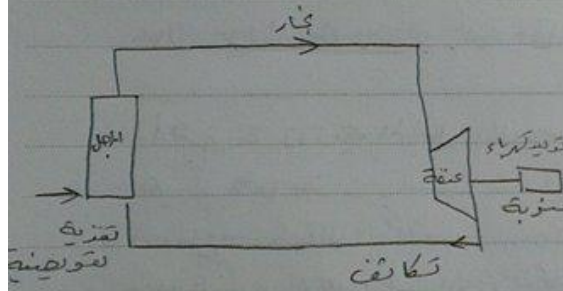 بخار
المرجل
توليد كهرباء
عنفة
منوبة
تغذية
تعويضية
تكاثف